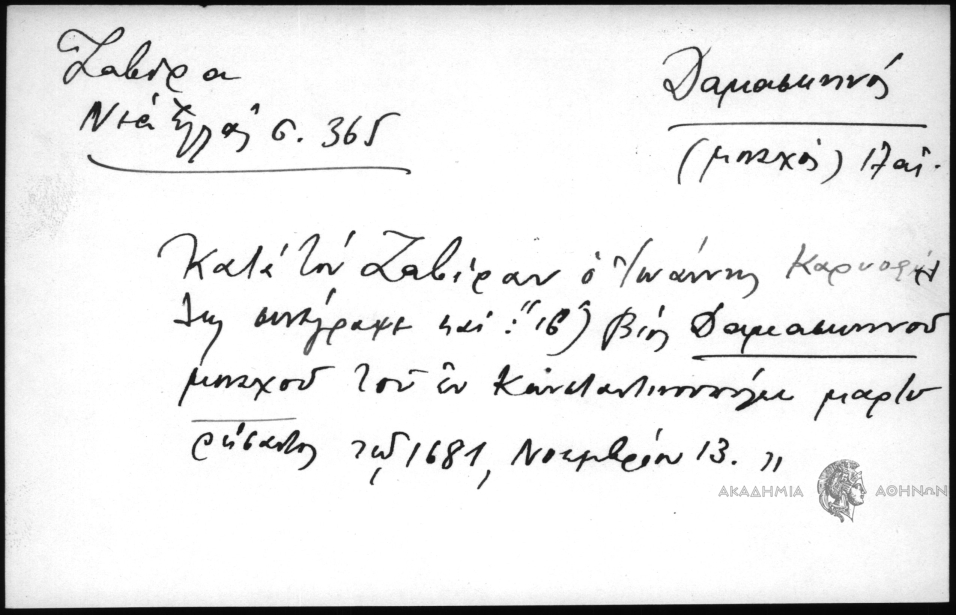 Ζαβίρα
Νέα Ἑλλάς σ. 365
Δαμασκηνός
(μοναχός) 17 αἰ.
Κατὰ τὸν Ζαβίραν ὁ Ἰωάννης Καρυοφύλ
λης συνέγραψε καί: "ιβ) βίος Δαμασκηνοῦ
μοναχοῦ τοῦ ἐν Κωνσταντινουπόλει μαρτυ
ρήσαντος τῷ 1681, Νοεμβρίου 13."
ΑΚΑΔΗΜΙΑ ΑΘΗΝΩΝ